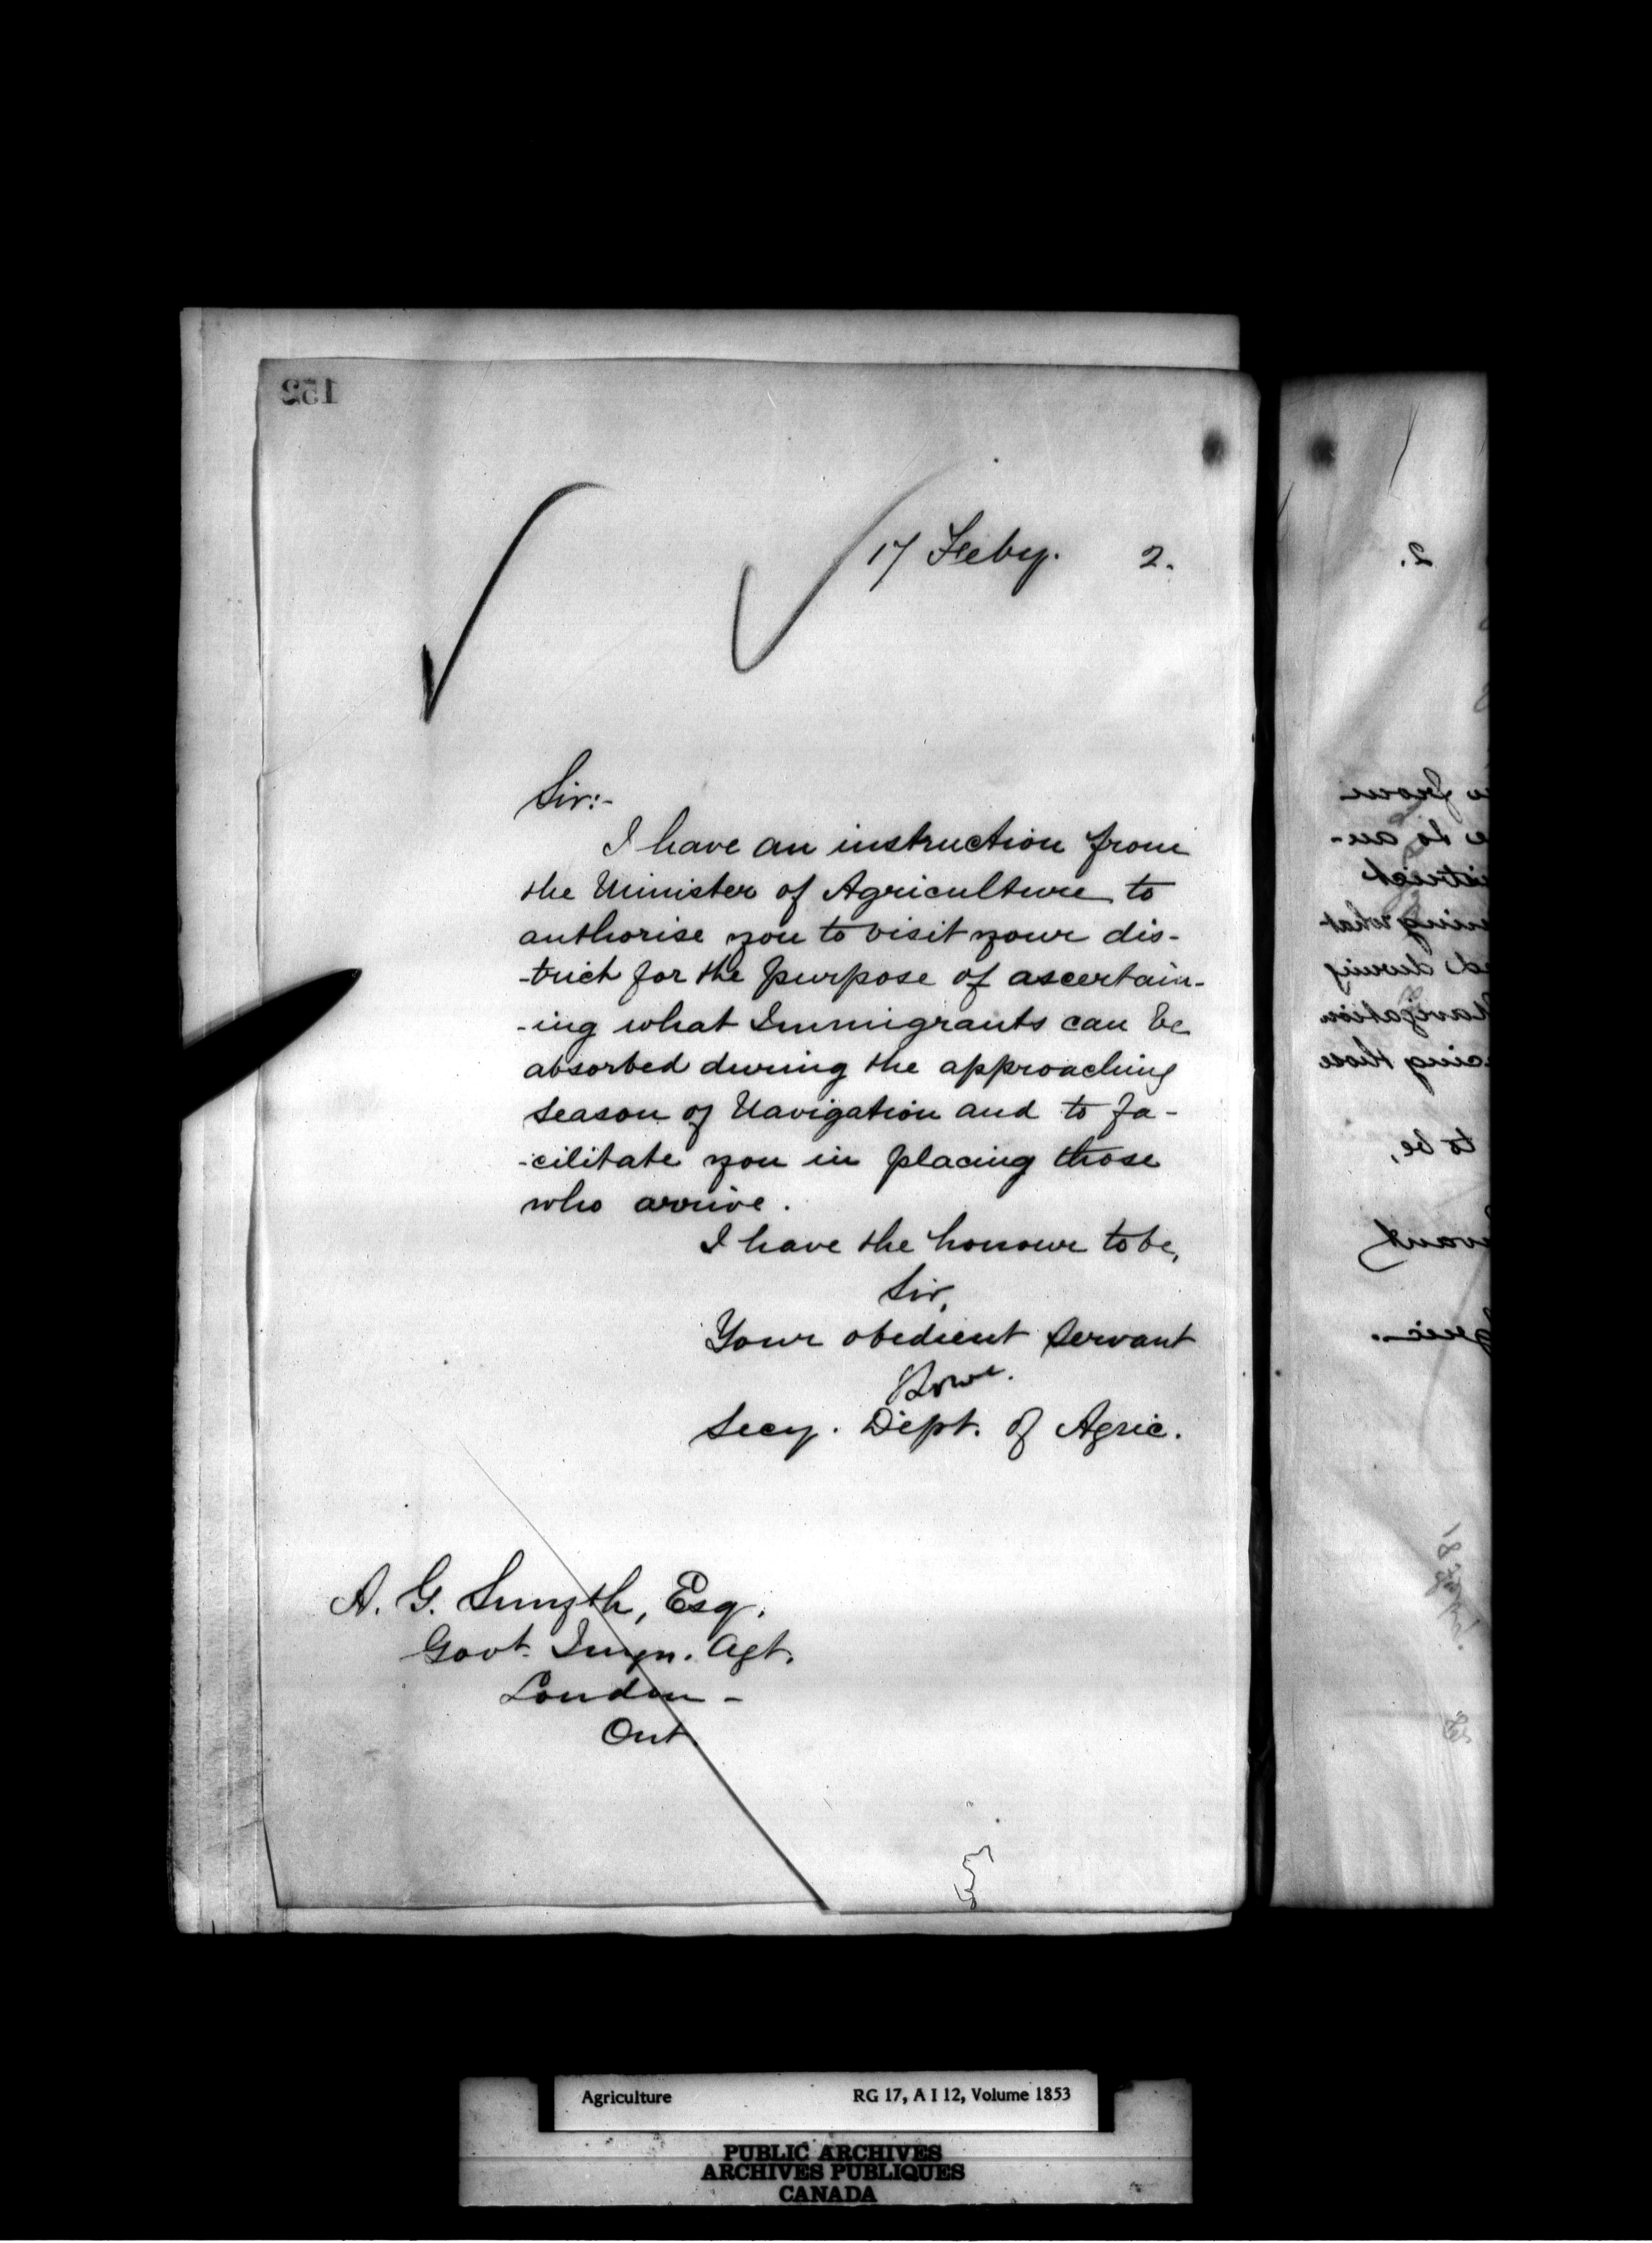 152
17 Feby. 2.
Sir:-
I have an instruction from
the Minister of Agriculture to
authorise you to visit your dis-
-trict for the purpose of ascertain-
-ing what Immigrants can be
absorbed during the approaching
season of Navigation and to fa-
-cilitate you in placing those
who arrive.
I have the honour to be,
Sir,
Your obedient servant
Secy. Dept. of Agric.
A. G. Smyth, Esq.
Govt. Imgn. Agt.
London -
Ont.
2.
from
to au-
what
during
Navigation
those
to be,
Agriculture RG 17, A I 12, Volume 1853
PUBLIC ARCHIVES
ARCHIVES PUBLIQUES
CANADA